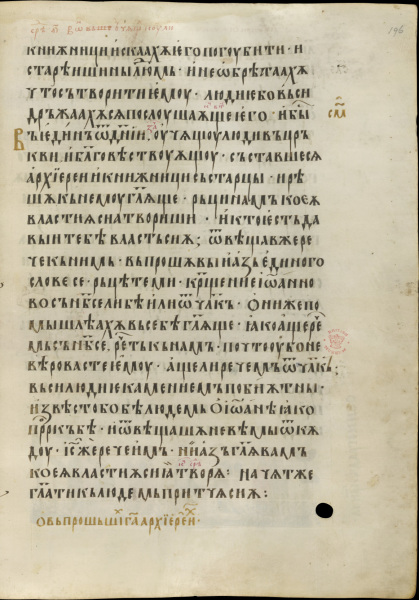 книжници искаахѫ его погоубити · и
старѣишины людемь · и не ѡбрѣтаахѫ
чтосътворити емоу · людие бо въси
дръжаахѫсѧ послоушаѧще его · и бы
въ единъ ѿ дн҃їи, оучѧщоу люди въ цр҃ъ
кви, и бл҃говѣствоуѧщоу · съставшесѧ
архїереи и книжници съ старцы · и рѣ
шѧ къ немоу гл҃ѧще · рьци намъ коеѧ
властиѧ сиа твориши · и кто естъ да
выи тебѣ власть сиѧ; ѿвѣщавже ре
че къ нимь · въпрошѫ вы и азъ единого
словесе · рьцѣте ми · кр҃щение іѡанно
во съ нб҃се ли бѣ или ѿ чл҃къ · они же по
мышлѣахѫ въ себѣ гл҃ѧще · ꙗко аще реч҃е
мъ съ нб҃се, реч҃етъ къ намъ · почто оубо не
вѣровасте емоу · аще ли речемъ ѿ чл҃къ;
въси людие камениемъ побиѫтъ ны ·
извѣсто бо бѣ людемъ о іѡаннѣ ꙗко
пр҃ркъ бѣ · и ѿвѣщашѧ не вѣмы ѿкѫ
доу · іс҃ же рече имъ · ни азъ гл҃ѧ вамъ
коеѧ властиѧ сиа творѧ: начѧтъ же
гл҃ати къ людемъ притчѧ сиѧ:
о въпрошьши г҃а архїереи ·
146